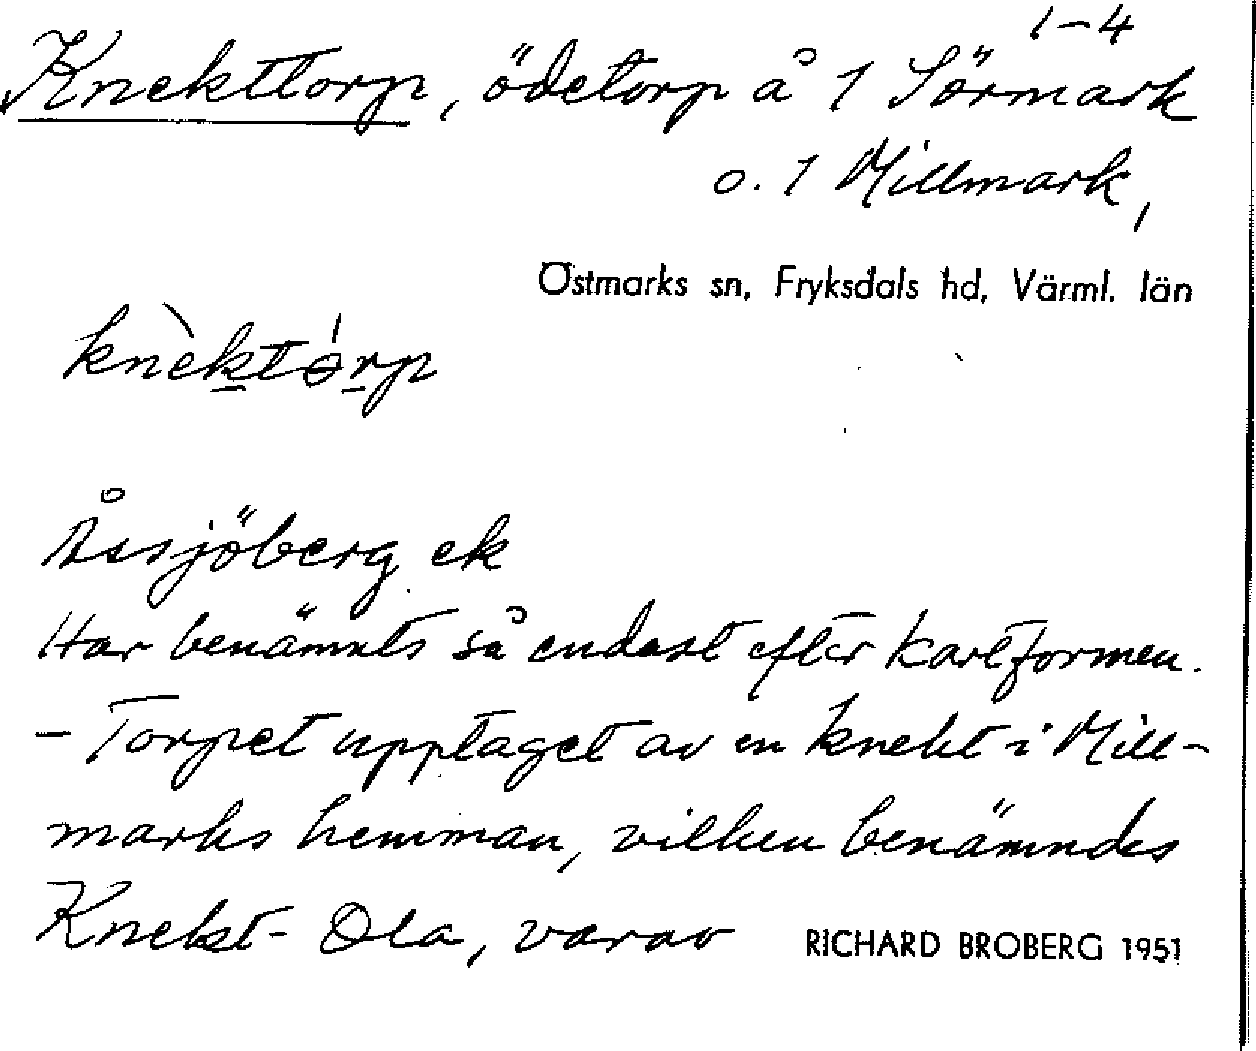 1-4
Knekttorp, ödetorp å 1 Sörmark
o. 1 Millmark,
Östmarks sn, Fryksdals hd, Värml. län
knèktórp
Åssjöberg ek
Har benämnts så endast efter kartformen.
- Torpet upptaget av en knekt i Mill-
marks hemman, vilken benämndes
Knekt-Ola, varav
RICHARD BROBERG 1951